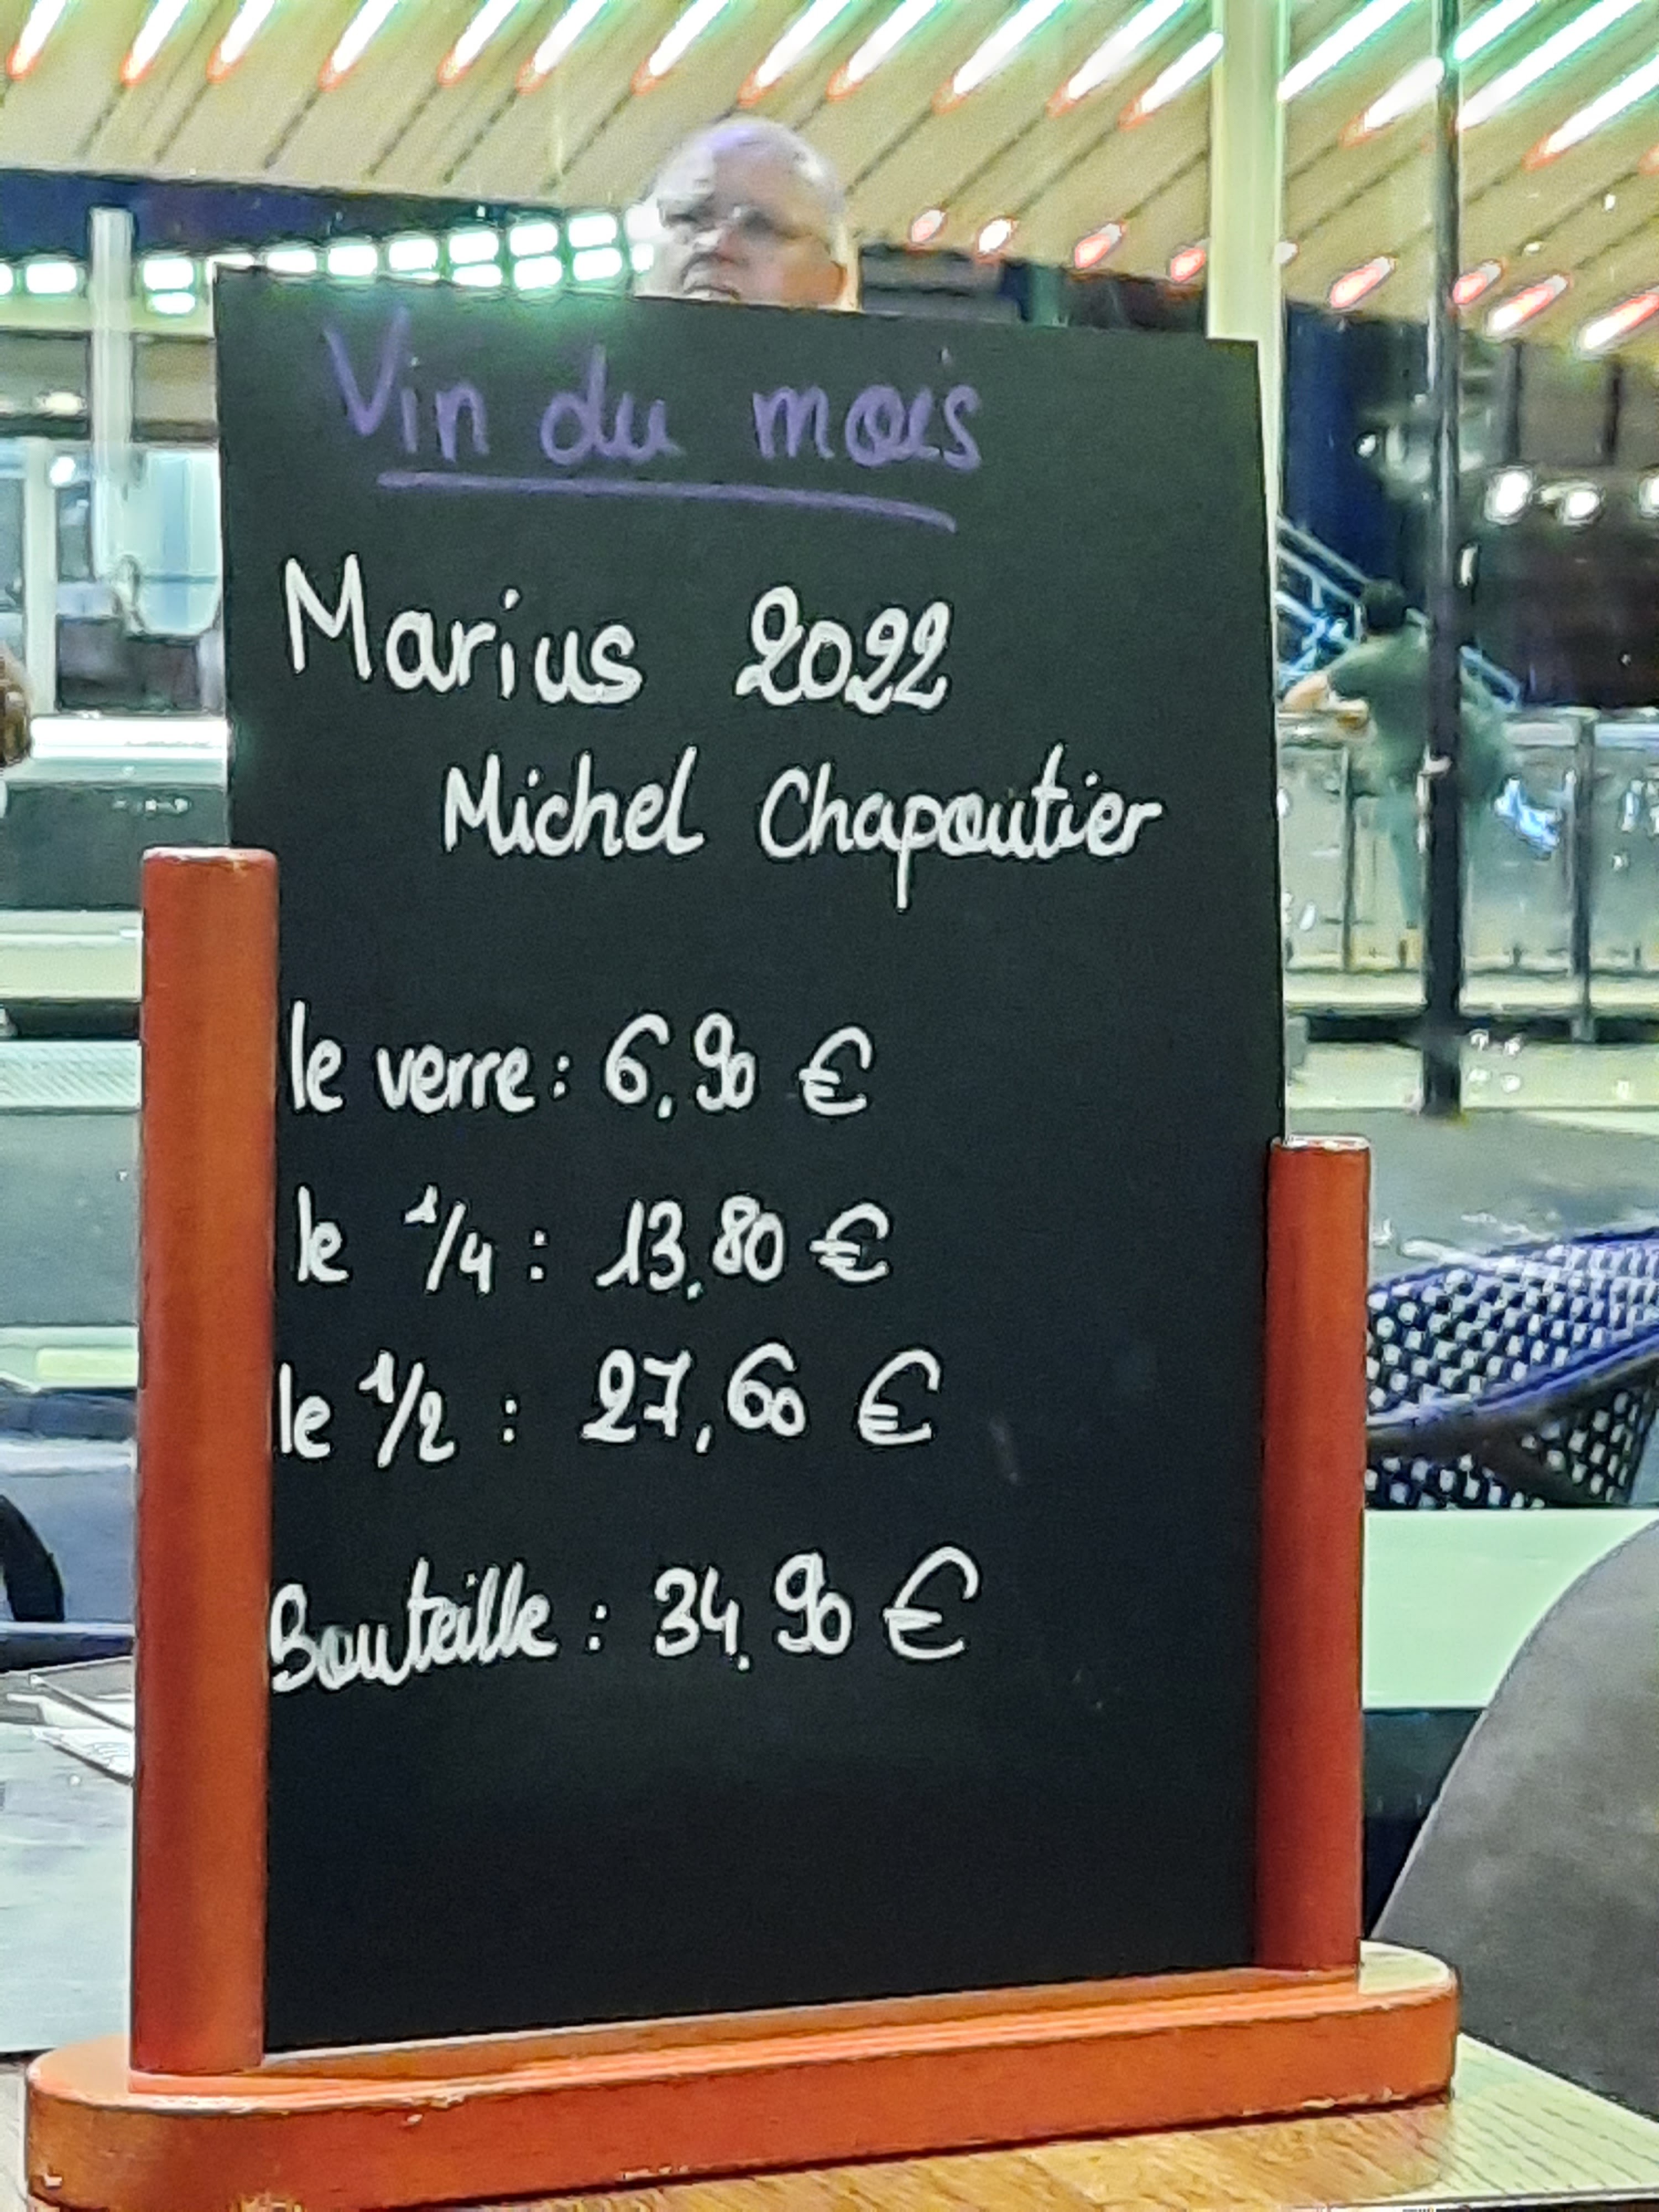 Vin du mois
Marius 2022
Michel Chapoutier
le verre : 6,90 €
le 1/4 : 13,80 €
le 1/2 : 27,60 €
Bouteille : 34,90 €